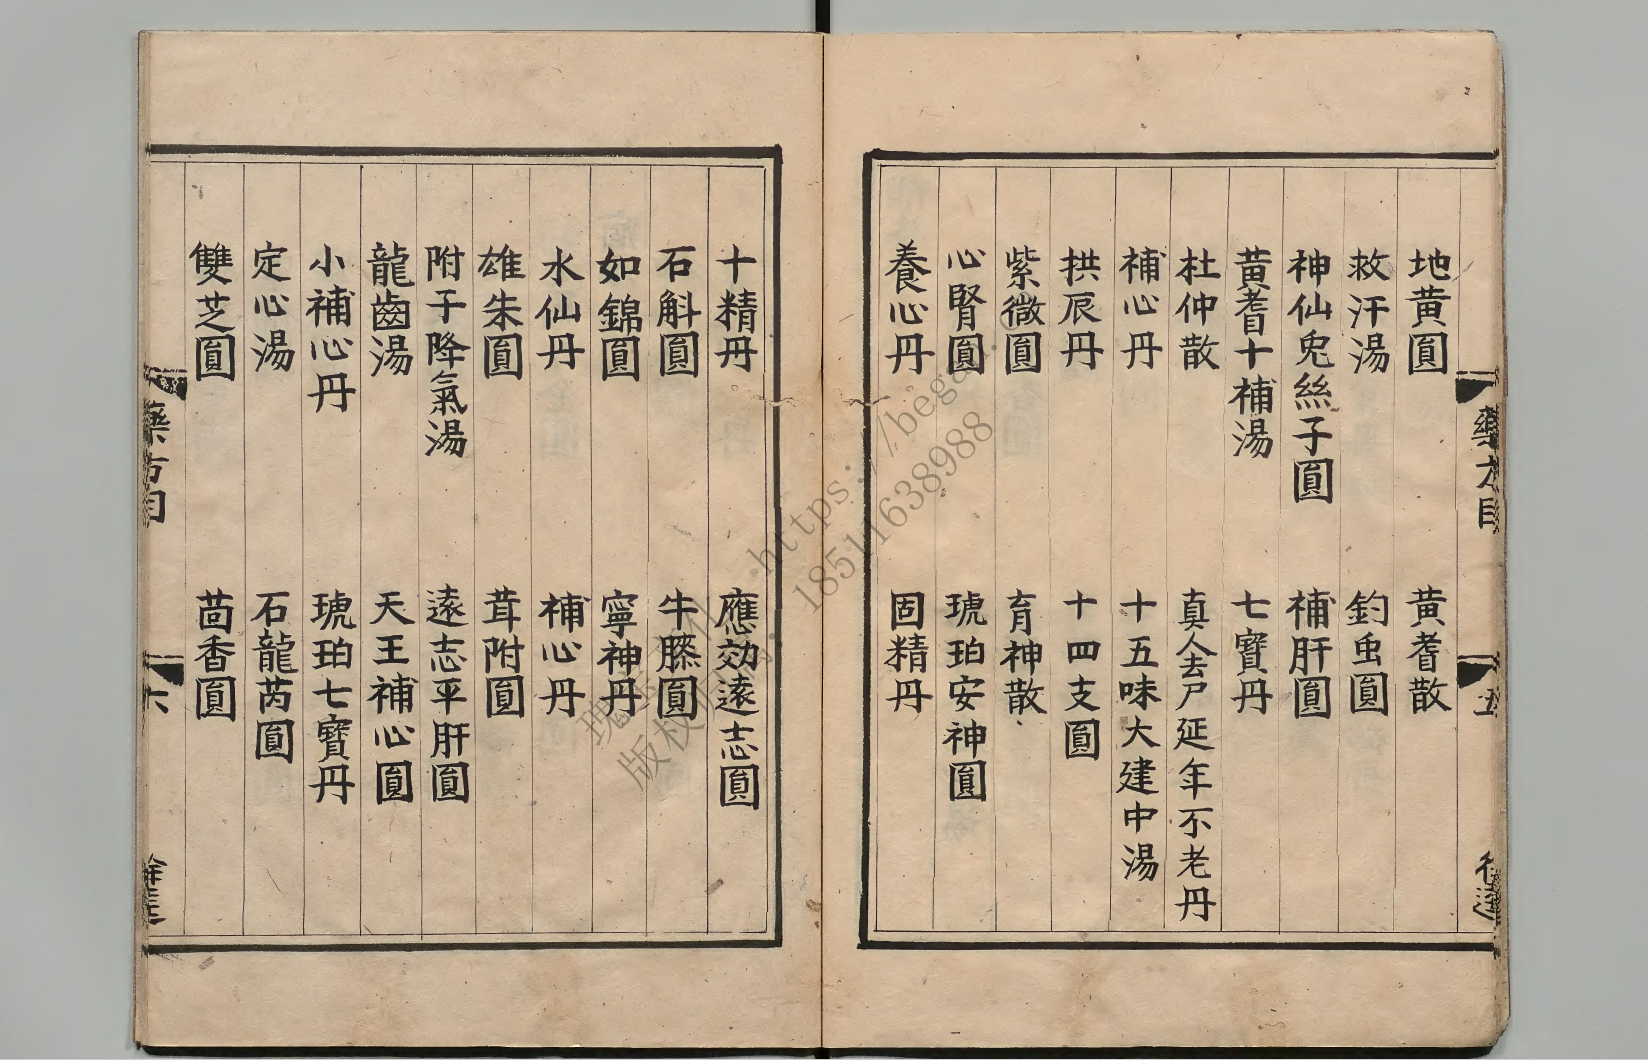 地黃圓 黃耆散
救汗湯 釣虫圓
神仙兎絲子圓 補肝圓
黃耆十補湯 七寶丹
杜仲散 真人去尸延年不老丹
補心丹 十五味大建中湯
拱辰丹 十四支圓
紫微圓 育神散
心腎圓 琥珀安神圓
養心丹 固精丹
十精丹 應効遠志圓
石斛圓 牛膝圓
如錦圓 寧神丹
水仙丹 補心丹
雄朱圓 茸附圓
附子降氣湯 遠志平肝圓
龍齒湯 天王補心圓
小補心丹 琥珀七寶丹
定心湯 石龍芮圓
雙芝圓 茴香圓
藥方目 六
藥方目 五
https://bega
18511638988
版权